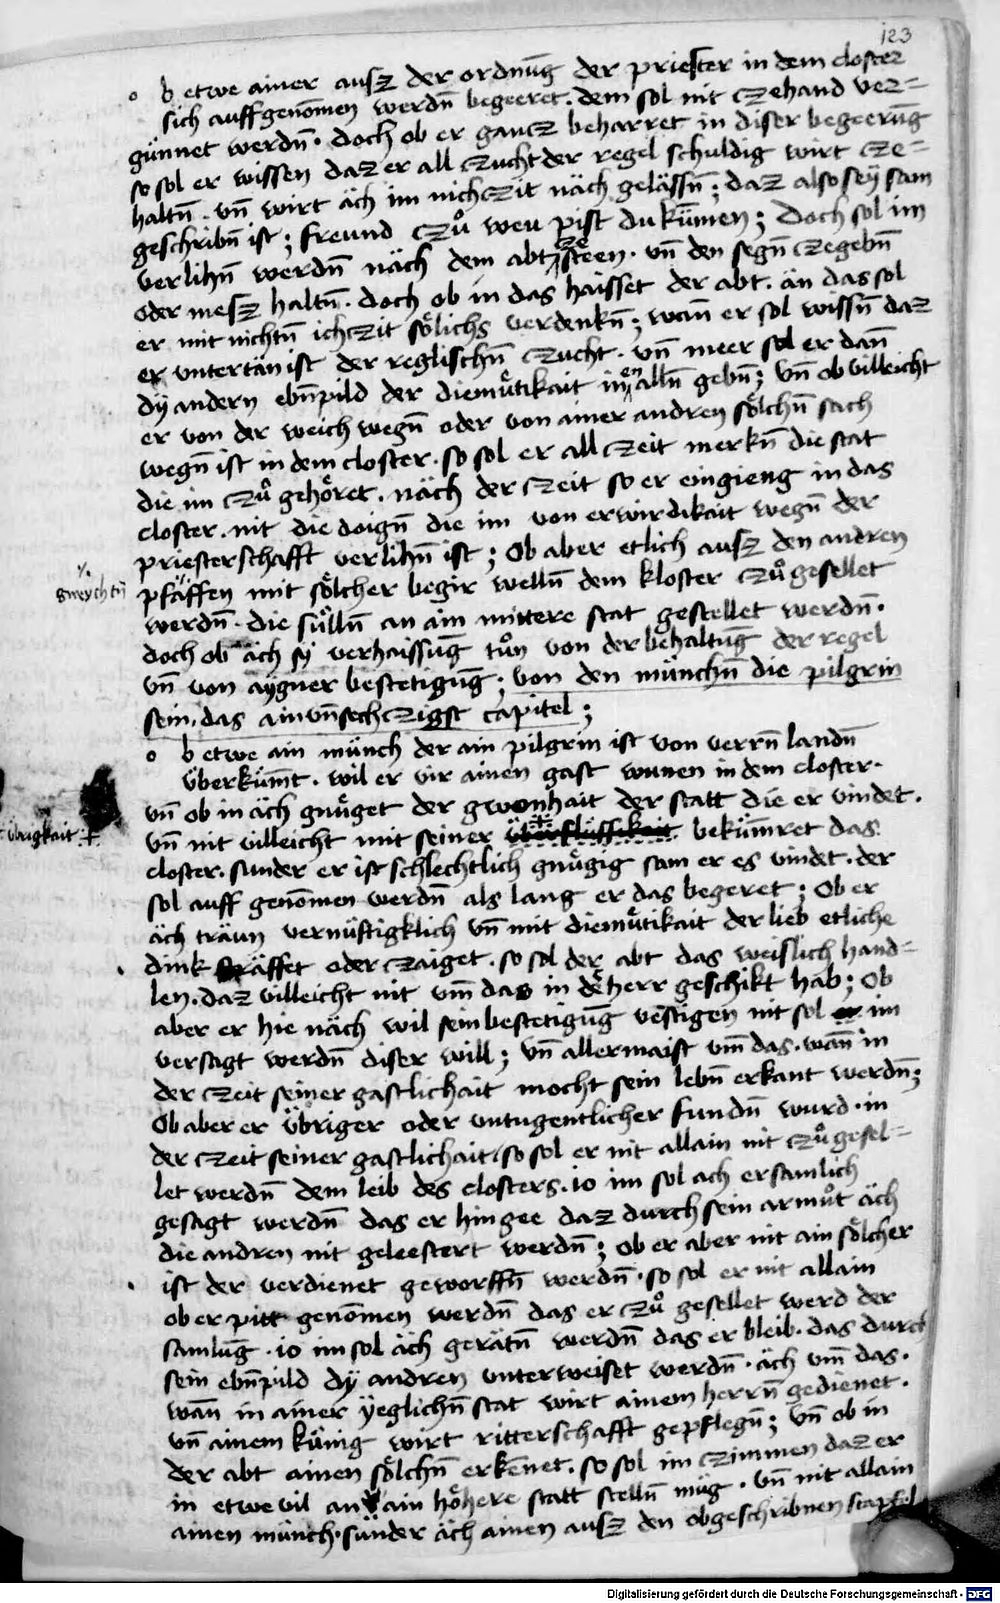 123
b etwe ainer ausz der ordnūg der priester in dem closter
sich auffgenōmen werdn̄ begeeret. dem sol nit czehand ver=
günnet werdn̄. doch ob er gancz beharret in diser begeerūg
so sol er wissen daz er all czucht der regel schuldig wirt cze=
haltn̄. vn̄ wirt äch im nichczit näch gelässn̄; daz also seÿ sam
geschribn̄ ist; freund czů weu pist du kūmen; Doch sol im
verlihn̄ werdn̄ näch dem abt czesteen. vn̄ den segn̄ czegebn̄
oder mesz haltn̄. doch ob in das haisset der abt. än das sol
er mit nichtn̄ ichczit sölichs verdenkn̄; wan̄ er sol wissn̄ daz
er vntertän ist der reglischn̄ czucht. vn̄ meer sol er dan̄
dÿ andern ebn̄pild der diemütikait in alln̄ gebn̄; vn̄ ob villeicht
er von der weich wegn̄ oder von ainer andren sölchn̄ sach
wegn̄ ist in dem closter. so sol er all czeit merkn̄ die stat
die im czů gehöret. näch der czeit so er eingieng in das
closter. nit die doign̄ die im von erwirdikait wegn̄ der
priesterschafft verlihn̄ ist; Ob aber etlich ausz den andren
gweychtn̄
pfäffen mit sölcher begir welln̄ dem kloster czů gesellet
werdn̄. die sülln̄ an ain mittere stat gestellet werdn̄.
doch ob äch sÿ verhaissūg tůn von der behaltūg der regel
vn̄ von aÿgner bestetigūg; von den münchn̄ die pilgrin
sein. das ainvn̄sechczigst capitel;
b etwe ain münch der ain pilgrin ist von verrn̄ landn̄
überkūmt. wil er vir ainen gast wunen in dem closter.
vn̄ ob in äch gnüget der gwonhait der statt die er vindet.
übrigkait +
vn̄ nit villeicht mit seiner überflüssikait bekümret das
closter. sunder er ist schlechtlich gnügig sam er es vindet. der
sol auff genōmen werdn̄ als lang er das begeret; Ob er
äch träun vernüftigklich vn̄ mit diemütikait der lieb etliche
dink sträffet oder czaiget. so sol der abt das weislich hand=
len. daz villeicht nit vm̄ das in der herr geschikt hab; Ob
aber er hie näch wil sein bestetigūg vestigen nit sol im
versagt werdn̄ diser will; vn̄ allermaist vm̄ das. wan̄ in
der czeit seiner gastlichait mocht sein lebn̄ erkant werdn̄;
Ob aber er übriger oder vntugentlicher fundn̄ wurd. in
der czeit seiner gastlichait so sol er nit allain nit czů gesel=
let werdn̄ dem leib des closters. io im sol ach ersamlich
gesagt werdn̄ das er hin gee daz durch sein armůt äch
die andren nit geleestert werdn̄; ob er aber nit ain sölcher
ist der verdienet geworffn̄ werdn̄. so sol er nit allain
ob er pitt genōmen werdn̄ das er czů gesellet werd der
samlūg. io im sol äch gerätn̄ werdn̄ das er bleib. das durch
sein ebn̄pild dÿ andren vnterweiset werdn̄. äch vm̄ das.
wan̄ in ainer ÿeglichn̄ stat wirt ainem herrn̄ gedienet.
vn̄ ainem künig wirt ritterschafft gepflegn̄; vn̄ ob in
der abt ainen sölchn̄ erkēnet. so sol im czimmen daz er
in etwe vil an ain höhere statt stelln̄ müg. vn̄ nit allain
ainen münch. sunder äch ainen ausz den obgeschribnen
Digitalisierung gefördert durch die Deutsche Forschungsgemeinschaft - DFG